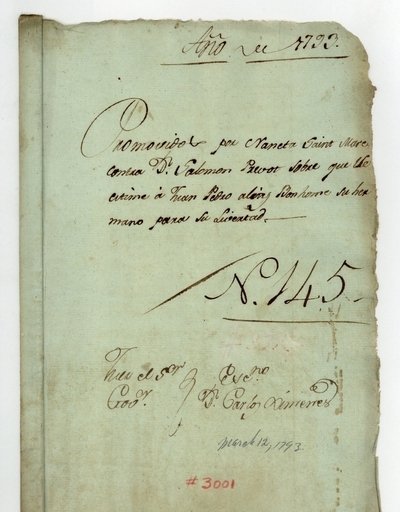 Añ̃o De 1793.
Promovidos por Naneta Saint Marc
contra Dⁿ. Salomon Prevot sobre que Ve
estime à Juan Pedro alias Bonhome su her
mano para su Livertad.
N. 145
Juez el Sᵒʳ
Govʳ.
Esc.ⁿᵒ
Dⁿ. Carlos Ximenes
March 12, 1793
# 3001